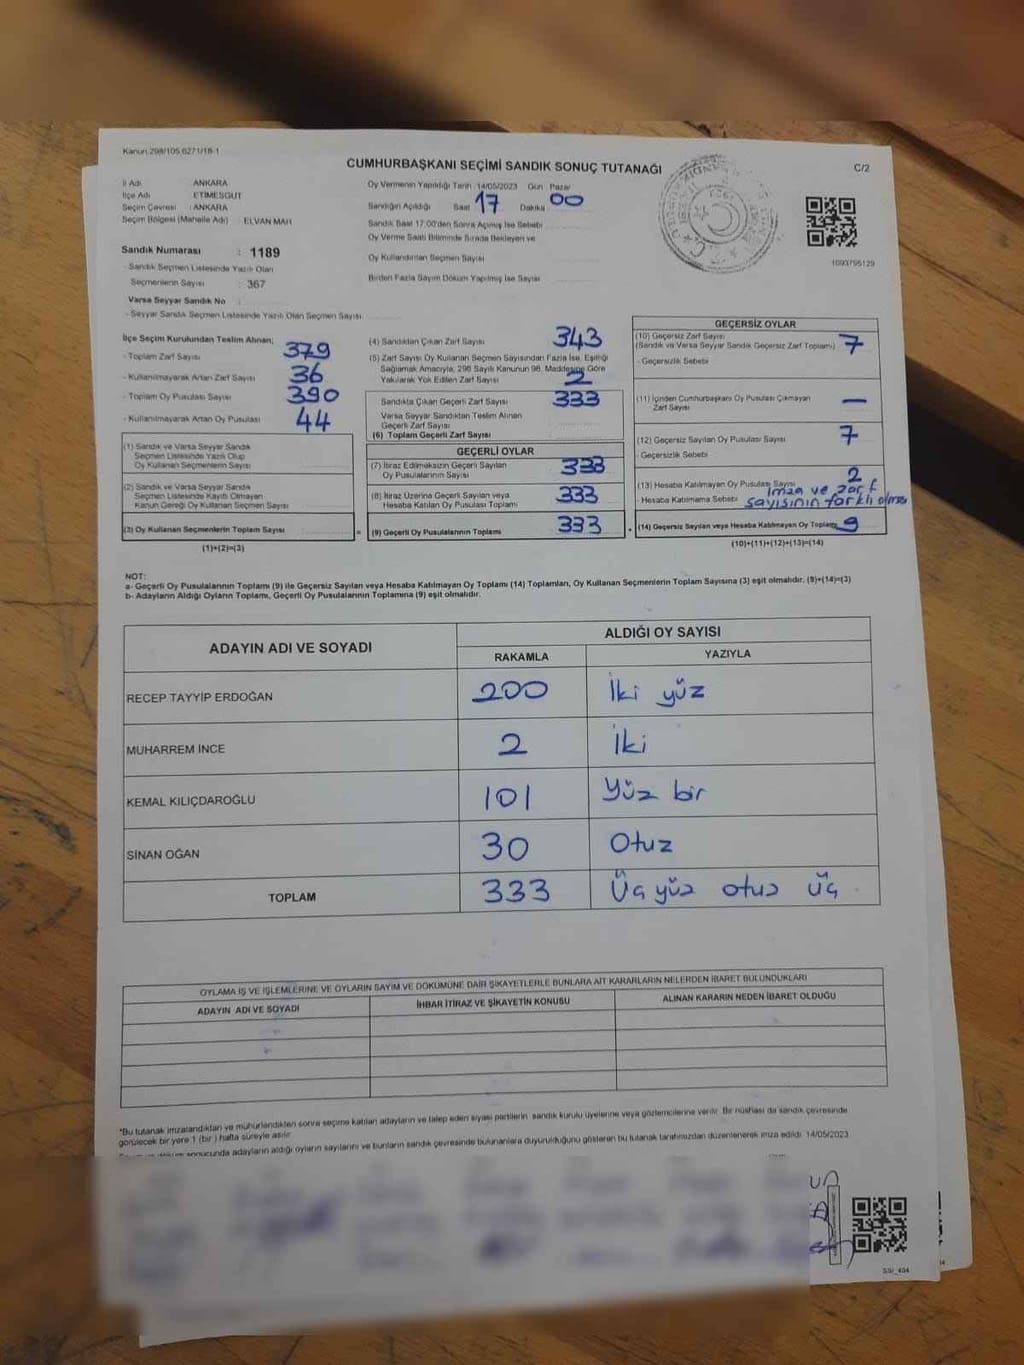 Kanun 298/105.6271/18-1
CUMHURBAŞKANI SEÇİMİ SANDIK SONUÇ TUTANAĞI
C/2
İl Adı ANKARA
İlçe Adı ETİMESGUT
Seçim Çevresi : ANKARA
Seçim Bölgesi (Mahalle Adı) ELVAN MAH
Sandık Numarası : 1189
- Sandık Seçmen Listesinde Yazılı Olan
Seçmenlerin Sayısı : 367
Varsa Seyyar Sandık No :
- Seyyar Sandık Seçmen Listesinde Yazılı Olan Seçmen Sayısı
Oy Vermenin Yapıldığı Tarih 14/05/2023 Gün Pazar
Sandığın Açıldığı Saat 17 Dakika 00
Sandık Saat 17:00'den Sonra Açılmış İse Sebebi
Oy Verme Saati Bitiminde Sırada Bekleyen ve
Oy Kullandırılan Seçmen Sayısı
Birden Fazla Sayım Döküm Yapılmış İse Sayısı
1093795129
İlçe Seçim Kurulundan Teslim Alınan;
- Toplam Zarf Sayısı 379
- Kullanılmayarak Artan Zarf Sayısı 36
- Toplam Oy Pusulası Sayısı 390
- Kullanılmayarak Artan Oy Pusulası 44
(1) Sandık ve Varsa Seyyar Sandık
Seçmen Listesinde Yazılı Olup
Oy Kullanan Seçmenlerin Sayısı
(2) Sandık ve Varsa Seyyar Sandık
Seçmen Listesinde Kayıtlı Olmayan
Kanun Gereği Oy Kullanan Seçmen Sayısı
(3) Oy Kullanan Seçmenlerin Toplam Sayısı
(1)+(2)=(3)
(4) Sandıktan Çıkan Zarf Sayısı 343
(5) Zarf Sayısı Oy Kullanan Seçmen Sayısından Fazla İse, Eşitliği
Sağlamak Amacıyla, 298 Sayılı Kanunun 98. Maddesine Göre
Yakılarak Yok Edilen Zarf Sayısı 2
Sandıkta Çıkan Geçerli Zarf Sayısı 333
Varsa Seyyar Sandıktan Teslim Alınan
Geçerli Zarf Sayısı
(6) Toplam Geçerli Zarf Sayısı
GEÇERLİ OYLAR
(7) İtiraz Edilmeksizin Geçerli Sayılan
Oy Pusulalarının Sayısı 333
(8) İtiraz Üzerine Geçerli Sayılan veya
Hesaba Katılan Oy Pusulası Toplamı 333
= (9) Geçerli Oy Pusulalarının Toplamı 333
GEÇERSİZ OYLAR
(10) Geçersiz Zarf Sayısı
(Sandık ve Varsa Seyyar Sandık Geçersiz Zarf Toplamı) 7
- Geçersizlik Sebebi
(11) İçinden Cumhurbaşkanı Oy Pusulası Çıkmayan
Zarf Sayısı —
(12) Geçersiz Sayılan Oy Pusulası Sayısı 7
- Geçersizlik Sebebi
(13) Hesaba Katılmayan Oy Pusulası Sayısı 2
- Hesaba Katılmama Sebebi imza ve zarf
sayısının farklı olması
+ (14) Geçersiz Sayılan veya Hesaba Katılmayan Oy Toplamı 9
(10)+(11)+(12)+(13)=(14)
NOT:
a- Geçerli Oy Pusulalarının Toplamı (9) ile Geçersiz Sayılan veya Hesaba Katılmayan Oy Toplamı (14) Toplamları, Oy Kullanan Seçmenlerin Toplam Sayısına (3) eşit olmalıdır. (9)+(14)=(3)
b- Adayların Aldığı Oyların Toplamı, Geçerli Oy Pusulalarının Toplamına (9) eşit olmalıdır.
ADAYIN ADI VE SOYADI
ALDIĞI OY SAYISI
RAKAMLA YAZIYLA
RECEP TAYYİP ERDOĞAN 200 İki yüz
MUHARREM İNCE 2 İki
KEMAL KILIÇDAROĞLU 101 Yüz bir
SİNAN OĞAN 30 Otuz
TOPLAM 333 Üç yüz otuz üç
OYLAMA İŞ VE İŞLEMLERİNE VE OYLARIN SAYIM VE DÖKÜMÜNE DAİR ŞİKAYETLERLE BUNLARA AİT KARARLARIN NELERDEN İBARET BULUNDUKLARI
ADAYIN ADI VE SOYADI İHBAR İTİRAZ VE ŞİKAYETİN KONUSU ALINAN KARARIN NEDEN İBARET OLDUĞU
*Bu tutanak imzalandıktan ve mühürlendikten sonra seçime katılan adayların ve talep eden siyasi partilerin sandık kurulu üyelerine veya gözlemcilerine verilir. Bir nüshası da sandık çevresinde
görülecek bir yere 1 (bir) hafta süreyle asılır.
sonucunda adayların aldığı oyların sayılarını ve bunların sandık çevresinde bulunanlara duyurulduğunu gösteren bu tutanak tarafımızdan düzenlenerek imza edildi. 14/05/2023
SSI_404